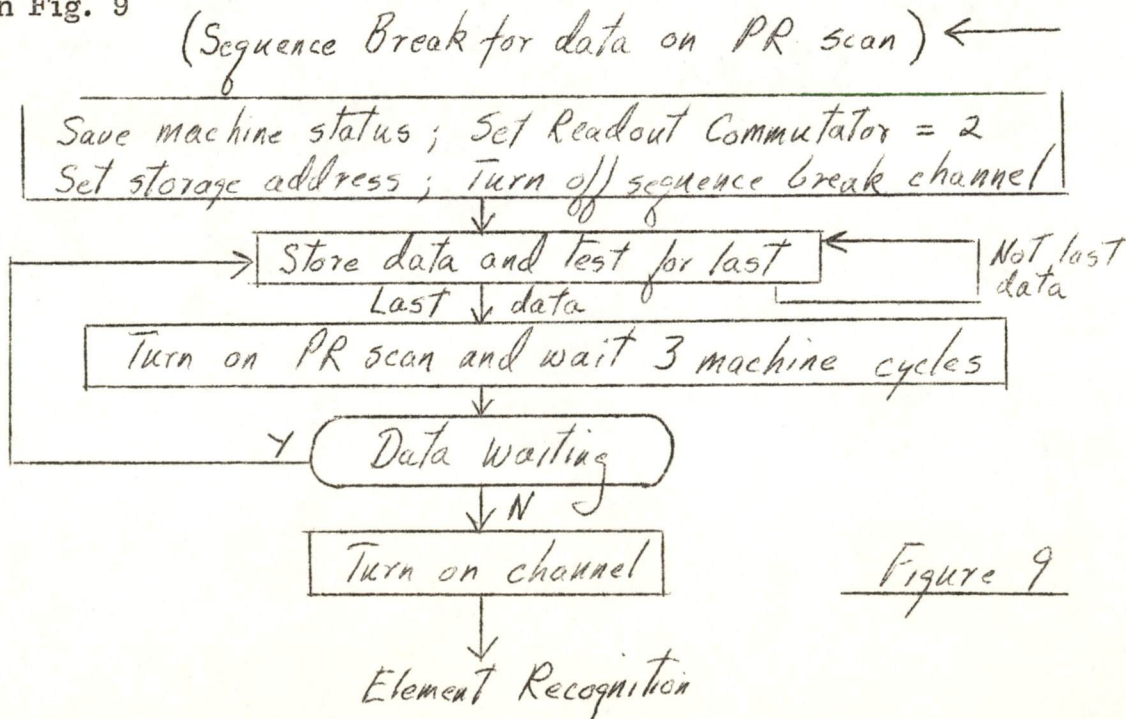 n Fig. 9
(Sequence Break for data on PR scan)
Save machine status; Set Readout Commutator = 2
Set storage address; Turn off sequence break channel
Store data and test for last
Not last
data
Last data
Turn on PR scan and wait 3 machine cycles
Y
Data waiting
N
Turn on channel
Figure 9
Element Recognition